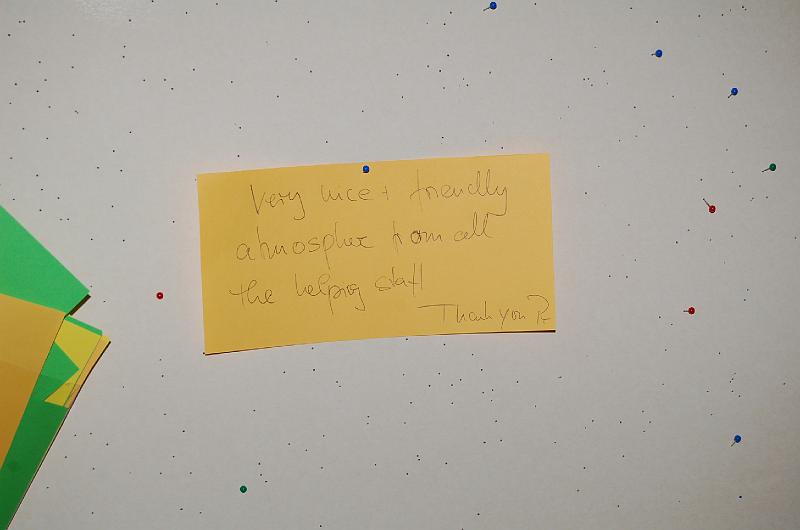 Very nice + friendly
atmosphere from all
the helping staff
Thank you